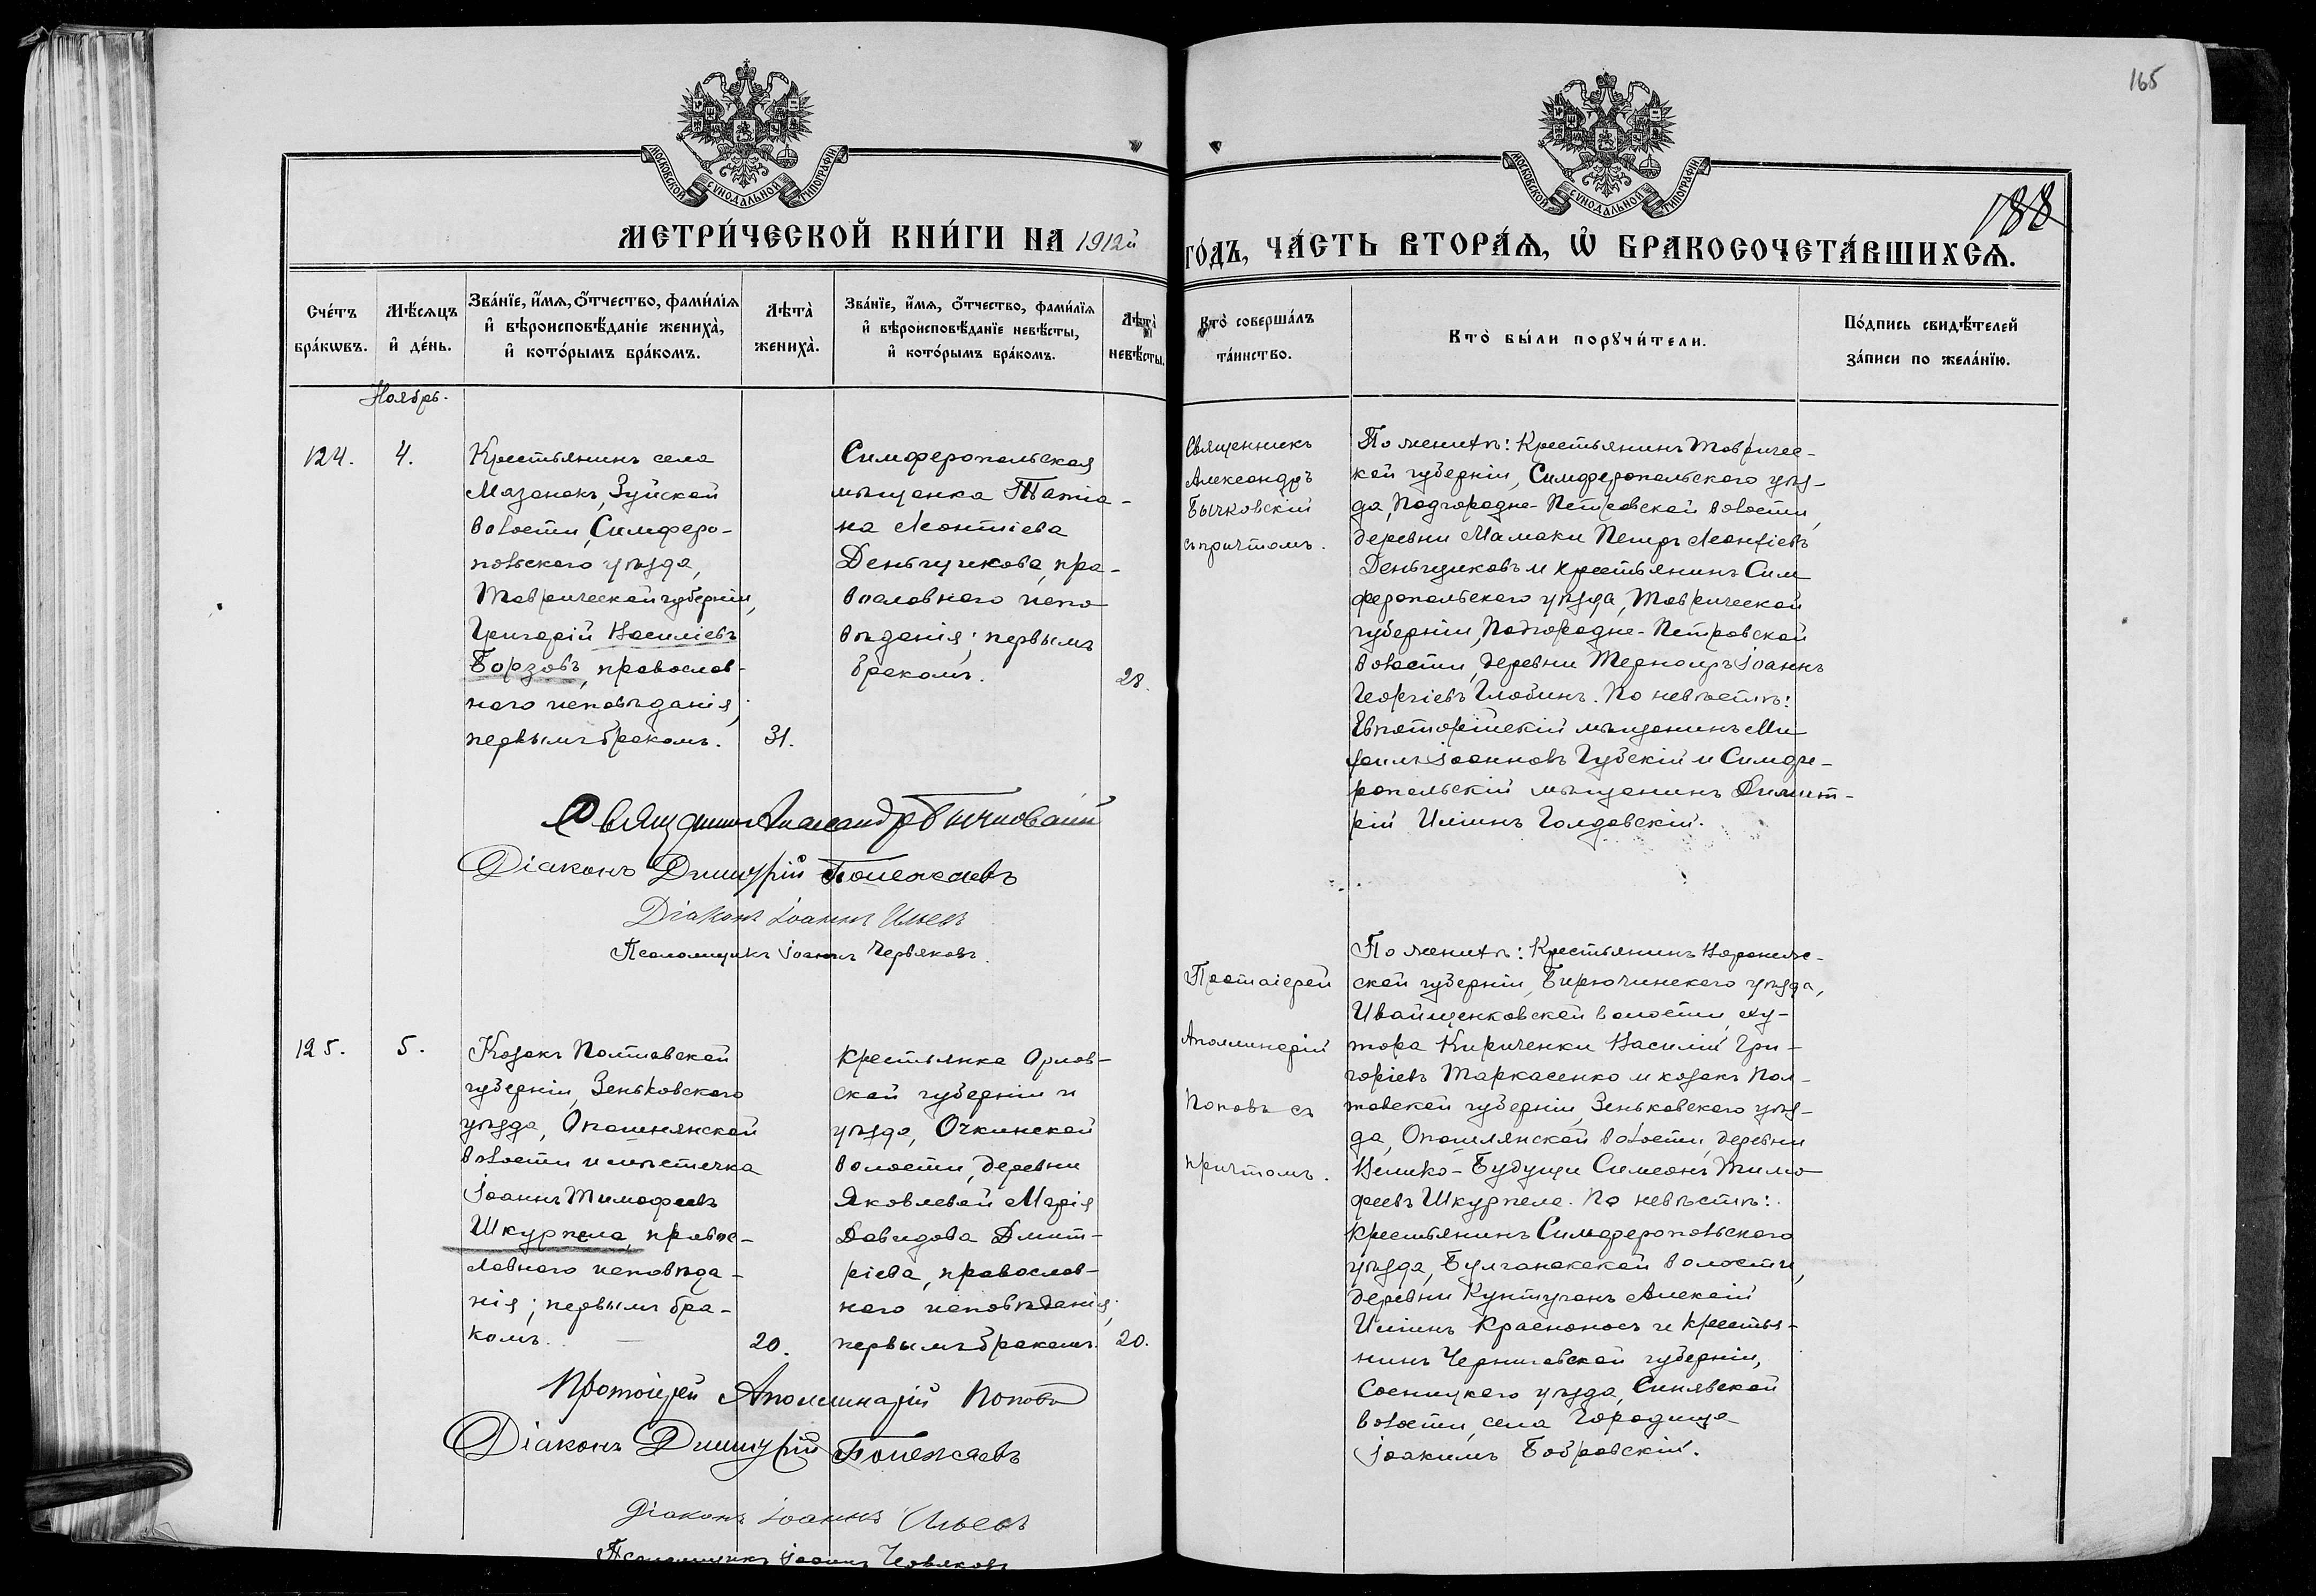 165
188
МОСКОВСКОЙ СѴНОДАЛЬНОЙ ТИПОГРАФІИ
МОСКОВСКОЙ СѴНОДАЛЬНОЙ ТИПОГРАФІИ
МЕТРИ́ЧЕСКОЙ КНИ́ГИ НА 1912й
ГО́ДЪ, ЧА́СТЬ ВТОРА́Ѧ, Ѡ҆ БРАКОСОЧЕТА́ВШИХСѦ.
Сче́тъ
бра́кѡвъ.
Мѣ́сѧцъ
и҆ де́нь.
Зва́нїе, и҆́мѧ, ѻ҆́тчество, фами́лїѧ
и҆ вѣроисповѣ́данїе жениха̀,
и҆ кото́рымъ бра́комъ.
Лѣта̀
жениха̀.
Зва́нїе, и҆́мѧ, ѻ҆́тчество, фами́лїѧ
и҆ вѣроисповѣ́данїе невѣ́сты,
и҆ кото́рымъ бра́комъ.
Лѣта̀
невѣ́сты.
Кто̀ соверша́лъ
та́инство.
Кто̀ бы́ли порꙋчи́тели.
По́дпись свидѣ́телей
за́писи по жела́нїю.
Ноябрь.
124.
4.
Крестьянинъ села
Мазанокъ, Зуйской
волости, Симферо-
польскаго уѣзда,
Таврической губерніи,
Григорій Василіевъ
Борзовъ, православ-
наго исповѣданія,
первымъ бракомъ.
31.
Симферопольская
мѣщанка Татіа-
на Леонтіева
Деньщикова, пра-
вославнаго испо-
вѣданія; первымъ
бракомъ.
28.
Священникъ
Александръ
Бычковскій
съ причтомъ.
По женихѣ: Крестьянинъ Тавричес-
кой губерніи, Симферопольскаго уѣз-
да, Подгородне-Петровской волости,
деревни Мамаки Петръ Леонтіевъ
Деньщиковъ и крестьянинъ Сим
феропольскаго уѣзда, Таврической
губерніи, Подгородне-Петровской
волости, деревни Тернаиръ Іоаннъ
Георгіевъ Глобинъ. По невѣстѣ:
Евпаторійскій мѣщанинъ Ми
хаилъ Іоанновъ Губскій и Симфе-
ропольскій мѣщанинъ Димит-
рій Иліинъ Голдовскій.
Священникъ Александръ Бычковскій
Діаконъ Димитрій Полежаевъ
Діаконъ Іоаннъ Ильевъ
Псаломщикъ Іоаннъ Червяковъ.
125.
5.
Козакъ Полтавской
губерніи, Зеньковскаго
уѣзда, Опошнянской
волости и мѣстечка
Іоаннъ Тимофеевъ
Шкурпела, правос-
лавнаго исповѣда-
нія; первымъ бра-
комъ.
20.
Крестьянка Орлов-
ской губерніи и
уѣзда, Очкинской
волости, деревни
Яковлевой Марія
Давидова Дмит-
ріева, православ-
наго исповѣданія;
первымъ бракомъ.
20.
Протоіерей
Аполлинарій
Поповъ съ
причтомъ.
По женихѣ: Крестьянинъ Воронеж-
ской губерніи, Бирючинскаго уѣзда,
Иващенковской волости, ху-
тора Кириченки Василій Гри-
горіевъ Таркасенко и козакъ Пол-
тавской губерніи, Зеньковскаго уѣз-
да, Опошлянской волости, деревни
Велико-Будущи Симеонъ Тимо
феевъ Шкурпела. По невѣстѣ:
крестьянинъ Симферопольскаго
уѣзда, Булганакской волости,
деревни Кунтуганъ Алексій
Иліинъ Красноносъ и крестья-
нинъ Черниговской губерніи,
Сосницкаго уѣзда, Синявской
волости, села Городища
Іоакимъ Бобровскій.
Протоіерей Аполлинарій Поповъ
Діаконъ Димитрій Полежаевъ
Діаконъ Іоаннъ Ильевъ
Псаломщикъ Іоаннъ Червяковъ